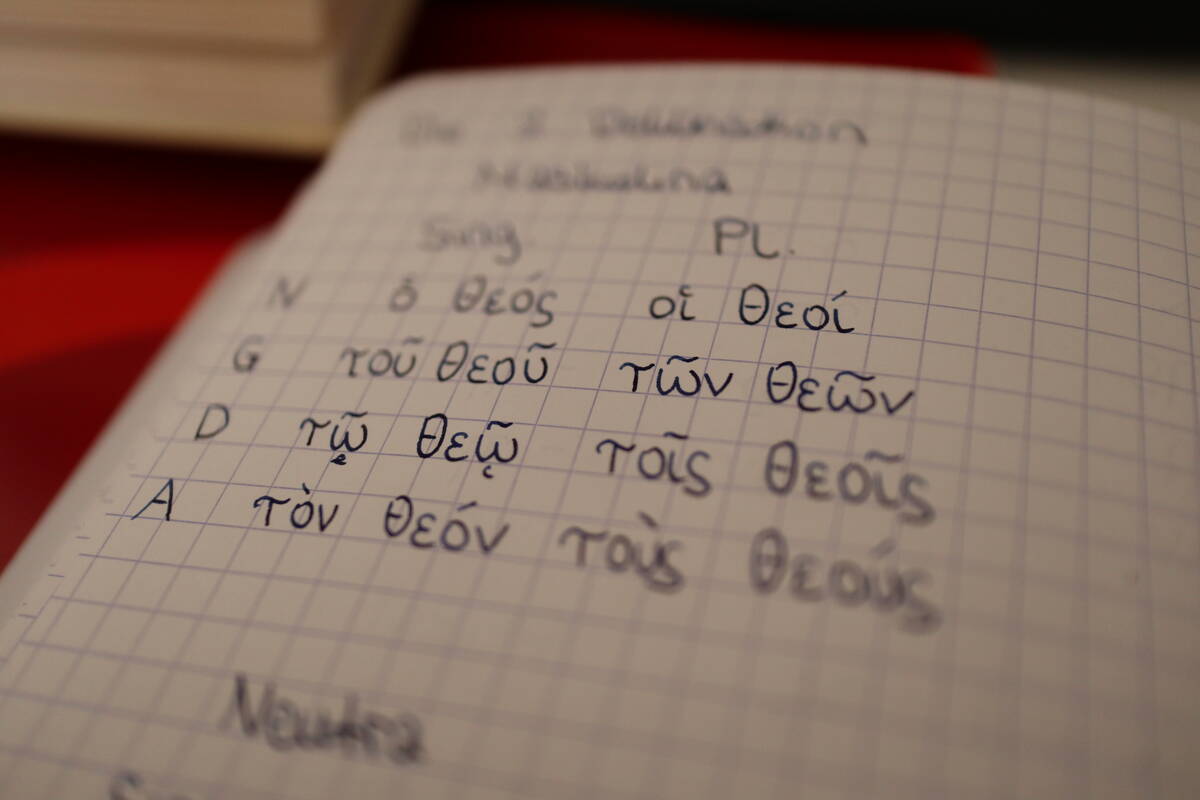 Die 2 Deklination
Maskulina
Sing. PL.
N ὁ θεός οἱ θεοί
G τοῦ θεοῦ τῶν θεῶν
D τῷ θεῷ τοῖς θεοῖς
A τὸν θεόν τοὺς θεούς
Neutra